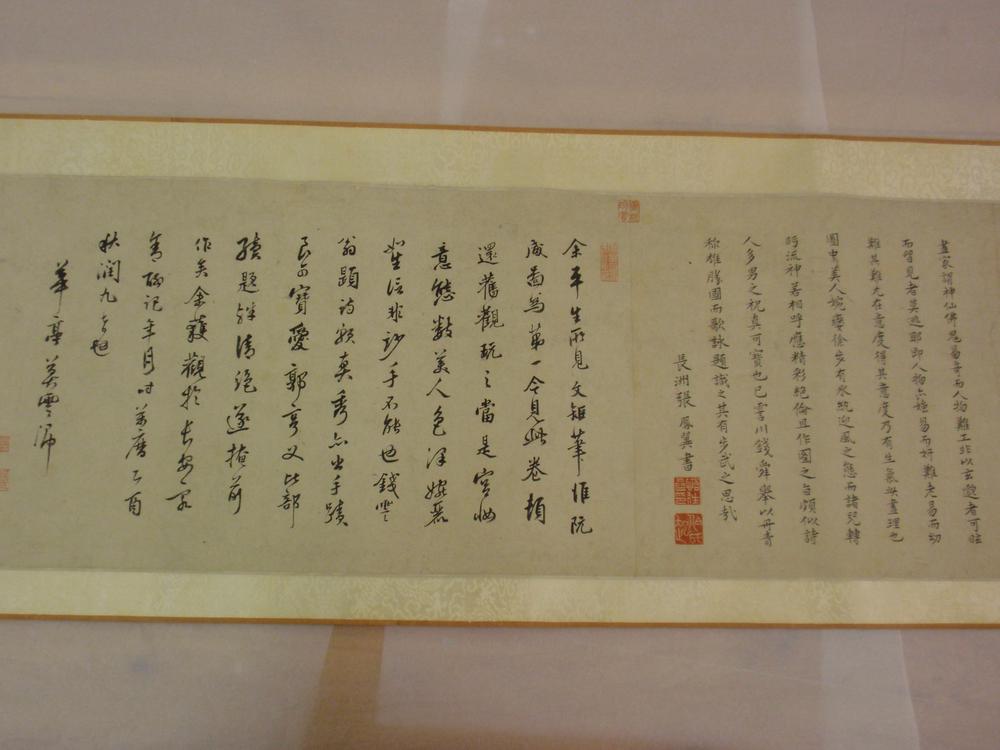 畫家謂神仙佛鬼易工而人物難工非以玄邈者可眩
而習見者莫逃耶即人物亦媸易而好難老易而幼
難其難尤在意度得其意度乃有生氣此畫理也
圖中美人婉孌徐步有水統迎風之態而諸兒轉
眄流神若相呼應精彩絕倫且作圖之旨頗似詩
人多男之祝真可寶也已霅川錢舜舉以丹青
稱雄勝國而歌詠題識之其有步武之思哉
長洲張鳳翼書
余平生所見文矩筆惟阮
咸圖為第一今見此卷頓
還舊觀玩之當是宮妝
意態數美人色澤娬麗
如生信非妙手不能也錢雪
翁題詩款真秀亦出手蹟
良而寶愛郭亨父比部
續題鮮清絕遂掩前
作矣余獲觀於長安
書所記年月時萬曆乙酉
秋潤九
華亭莫雲卿